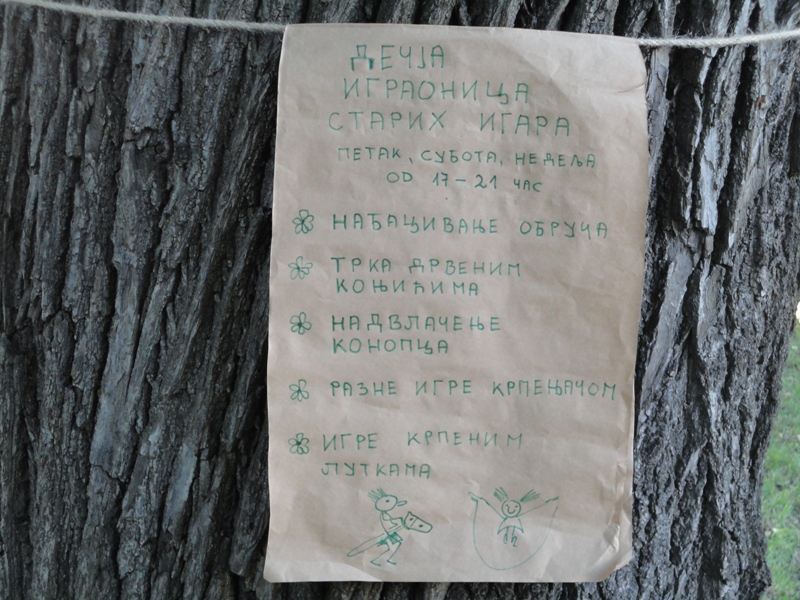 ДЕЧЈА
ИГРАОНИЦА
СТАРИХ ИГАРА
ПЕТАК, СУБОТА, НЕДЕЉА
ОД 17-21 ЧАС
НАБАЦИВАЊЕ ОБРУЧА
ТРКА ДРВЕНИМ
КОЊИЋИМА
НАДВЛАЧЕЊЕ
КОНОПЦА
РАЗНЕ ИГРЕ КРПЕЊАЧОМ
ИГРЕ КРПЕНИМ
ЛУТКАМА